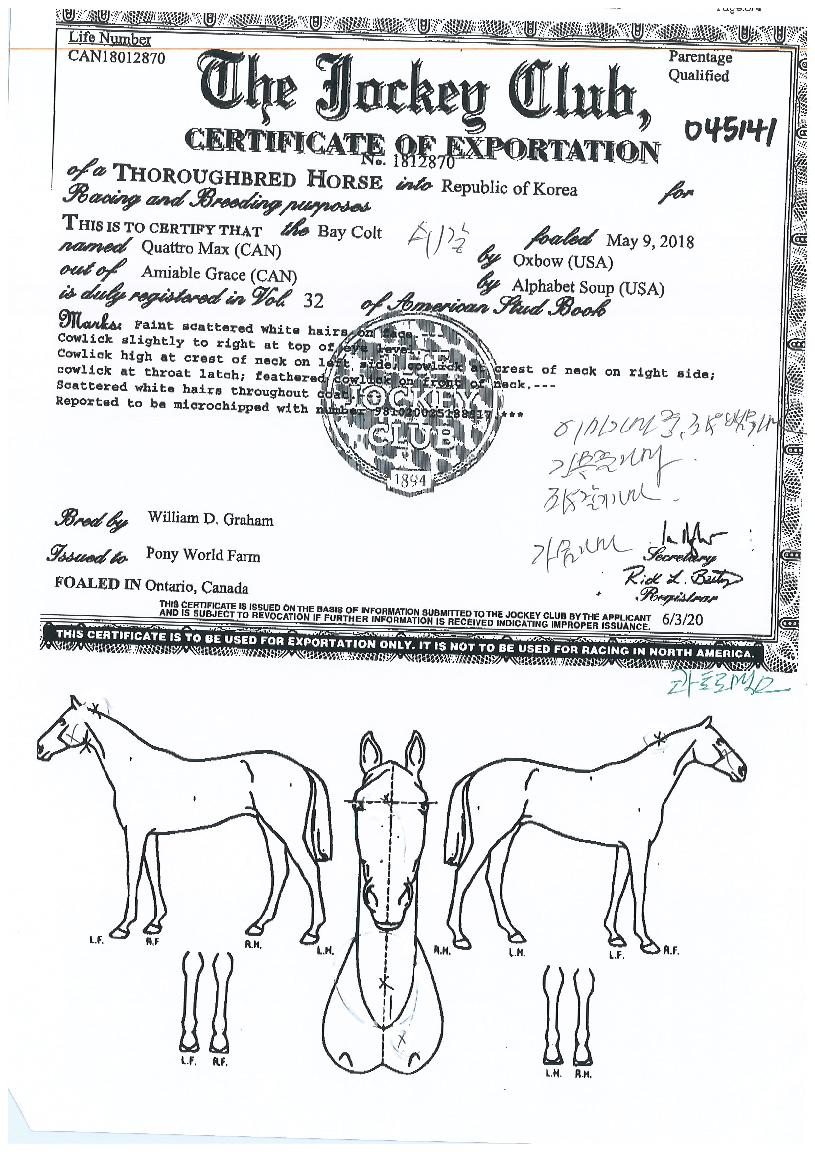 Life Number
CAN18012870
Parentage
Qualified
The Jockey Club,
045141
CERTIFICATE OF EXPORTATION
No. 1812870
of a THOROUGHBRED HORSE into Republic of Korea for
Racing and Breeding purposes
THIS IS TO CERTIFY THAT the Bay Colt foaled May 9, 2018
named Quattro Max (CAN) by Oxbow (USA)
out of Amiable Grace (CAN) by Alphabet Soup (USA)
is duly registered in Vol. 32 of American Stud Book
Marks: Faint scattered white hairs on face.---
Cowlick slightly to right at top of eye level.
Cowlick high at crest of neck on left side; cowlick at crest of neck on right side;
cowlick at throat latch; feathered cowlick on front of neck.---
Scattered white hairs throughout coat.
Reported to be microchipped with number ***
THE
JOCKEY
CLUB
1894
Bred by William D. Graham
Issued to Pony World Farm
Secretary
Registrar
FOALED IN Ontario, Canada
THIS CERTIFICATE IS ISSUED ON THE BASIS OF INFORMATION SUBMITTED TO THE JOCKEY CLUB BY THE APPLICANT
AND IS SUBJECT TO REVOCATION IF FURTHER INFORMATION IS RECEIVED INDICATING IMPROPER ISSUANCE. 6/3/20
THIS CERTIFICATE IS TO BE USED FOR EXPORTATION ONLY. IT IS NOT TO BE USED FOR RACING IN NORTH AMERICA.
L.F. R.F R.H. L.H. R.H. L.H. L.F. R.F.
L.F. R.F. L.H. R.H.